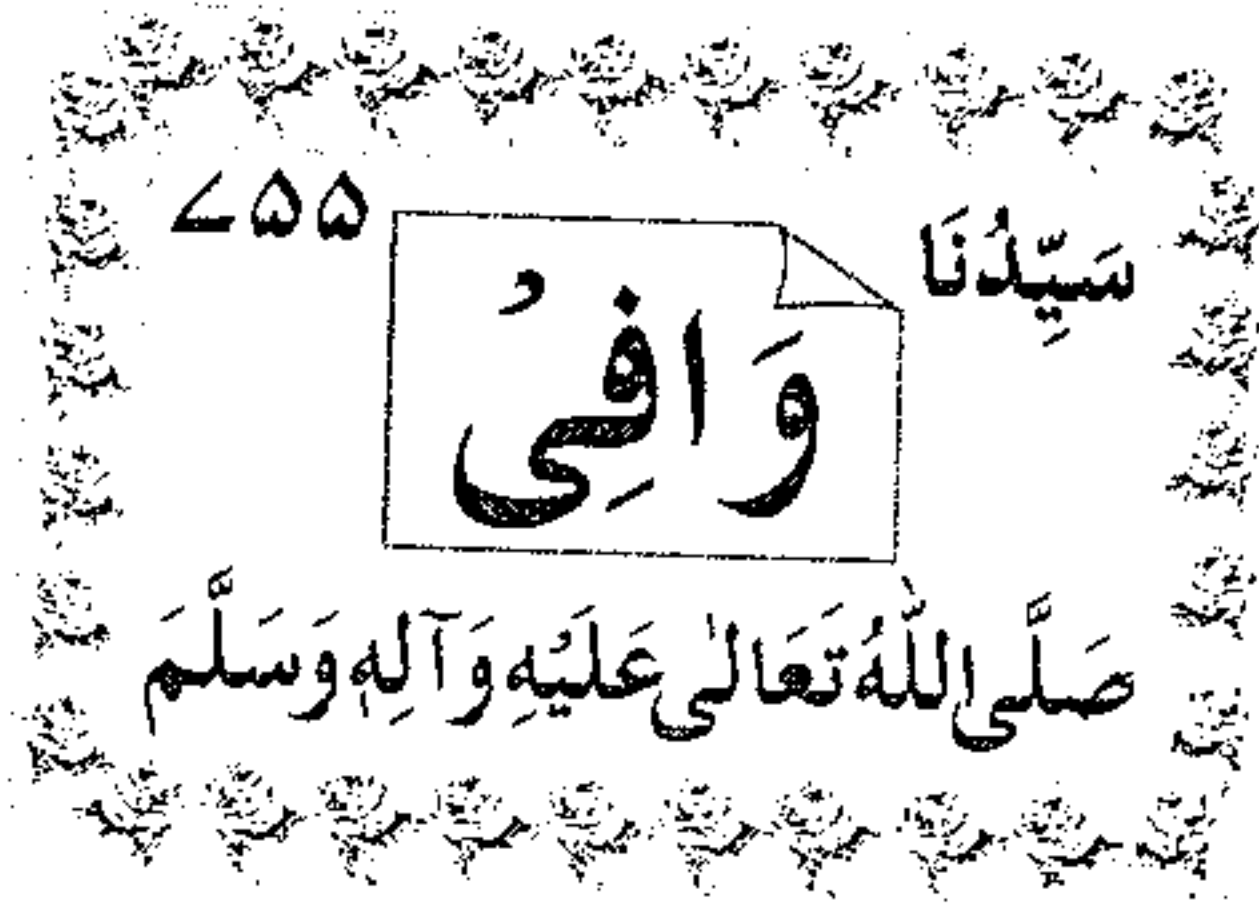 سَیِّدُنَا ۷۵۵
وَافِیُ
صَلَّی اللّٰهُ تَعَالٰی عَلَیْهِ وَآلِهٖ وَسَلَّمَ